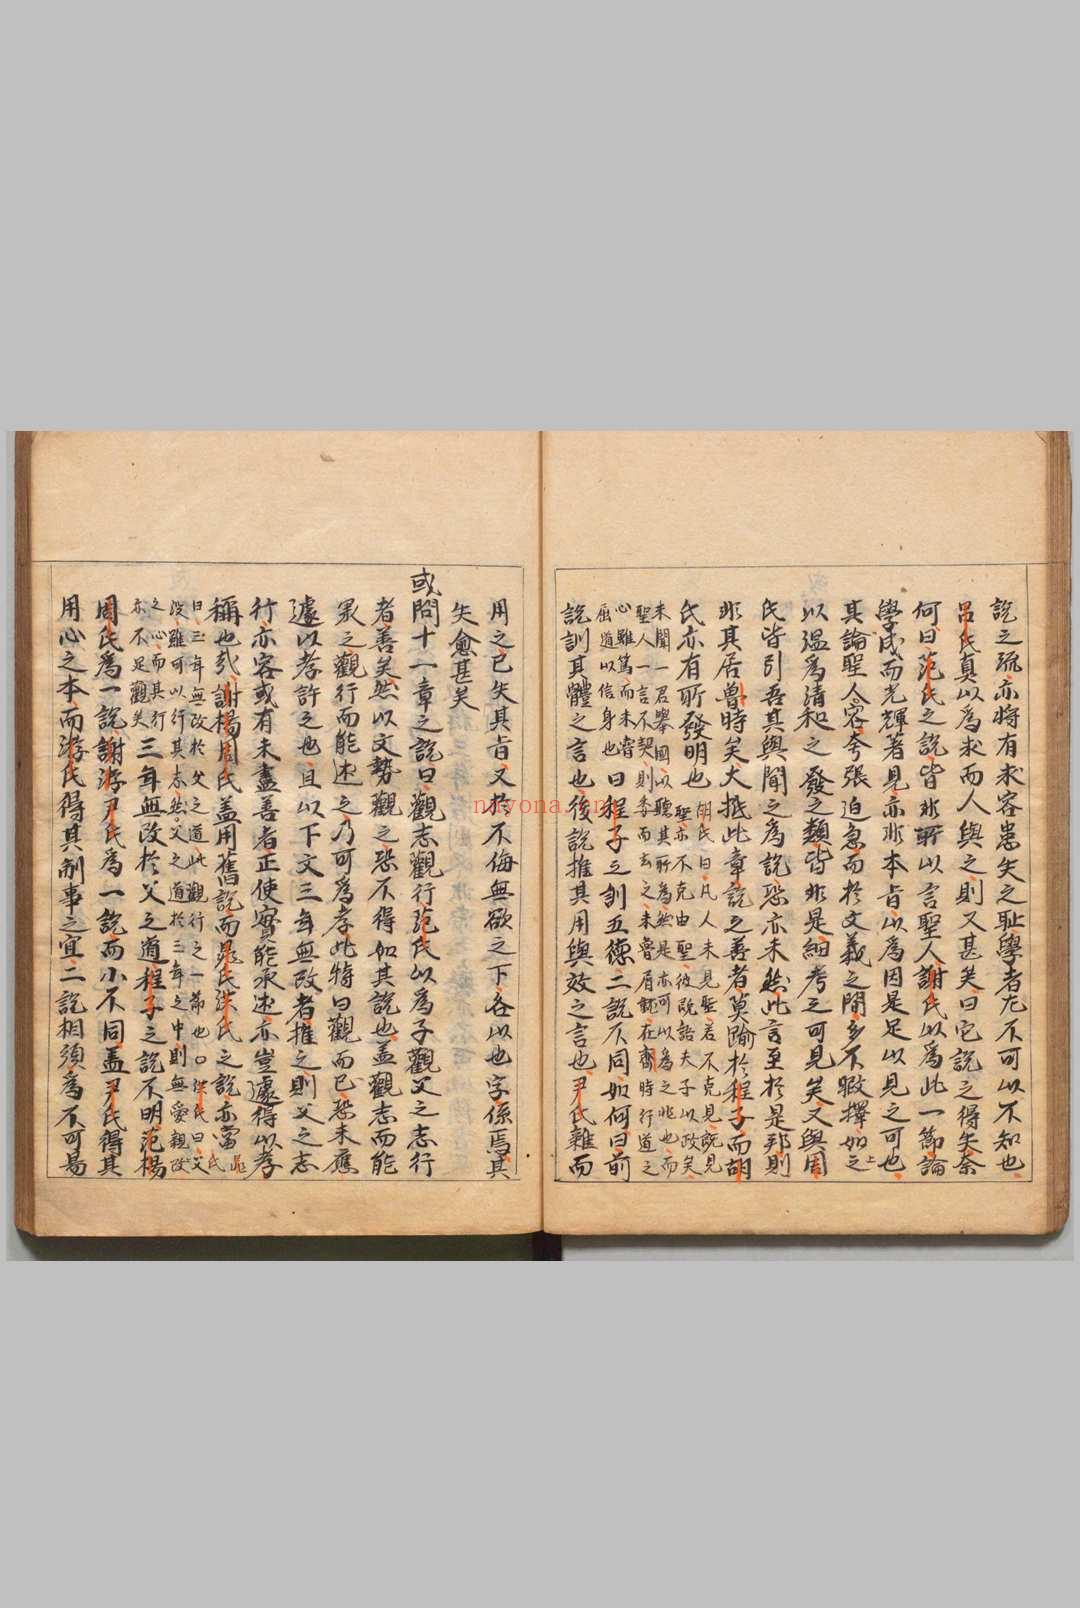 説之流亦將有求容患失之恥學者尤不可以不知也
吕氏真以爲求而人與之則又甚矣曰它説之得失奈
何曰范氏之説皆非所以言聖人謝氏以爲此一節論
學成而光輝著見亦非本旨以爲因是足以見之可也
其論聖人容夸張迫急而於文義之間多不暇擇如之上
以温爲清和之發之類皆非是細考之可見矣又與周
氏皆引吾其與聞之爲説恐亦未然此言至於是邦則
非其居魯時矣大抵此章説之善者莫踰於程子而胡
氏亦有所發明也
胡氏曰凡人未見聖若不克見既見
聖亦不克由聖彼既語夫子以政矣
未聞一君擧國以聽其所爲然是亦可以為之兆也而
聖人一言不契則委而去之未魯肩
在齊時行道之
心雖篤而未嘗
屈道以信身也
曰程子之訓五德二説不同如何曰前
説訓其體之言也後説推其用與效之言也尹氏雜而
用之已失其旨又於不侮無欲之下各以也字係焉其
失愈甚矣
或問十一章之説曰觀志觀行范氏以爲子觀父之志行
者善矣然以文勢觀之恐不得如其説也蓋觀志而能
承之觀行而能述之乃可爲孝此特曰觀而已恐未應
遽以孝許之也且以下文三年無改者推之則父之志
行亦容或有未盡善者正使實能承述亦豈遽得以孝
稱也哉謝楊周氏蓋用舊説而晁氏洪氏之説亦當
晁氏
曰三年無改於父之道此觀行之一節也○洪氏曰父
没雖可以行其志然父之道於三年之中則無愛親改
之心而其行
亦不足觀矣
三年無改於父之道程子之説不明范楊
周氏爲一説謝游尹氏爲一説而小不同蓋尹氏得其
用心之本而游氏得其制事之宜二説相須爲不可易
nayona.cn